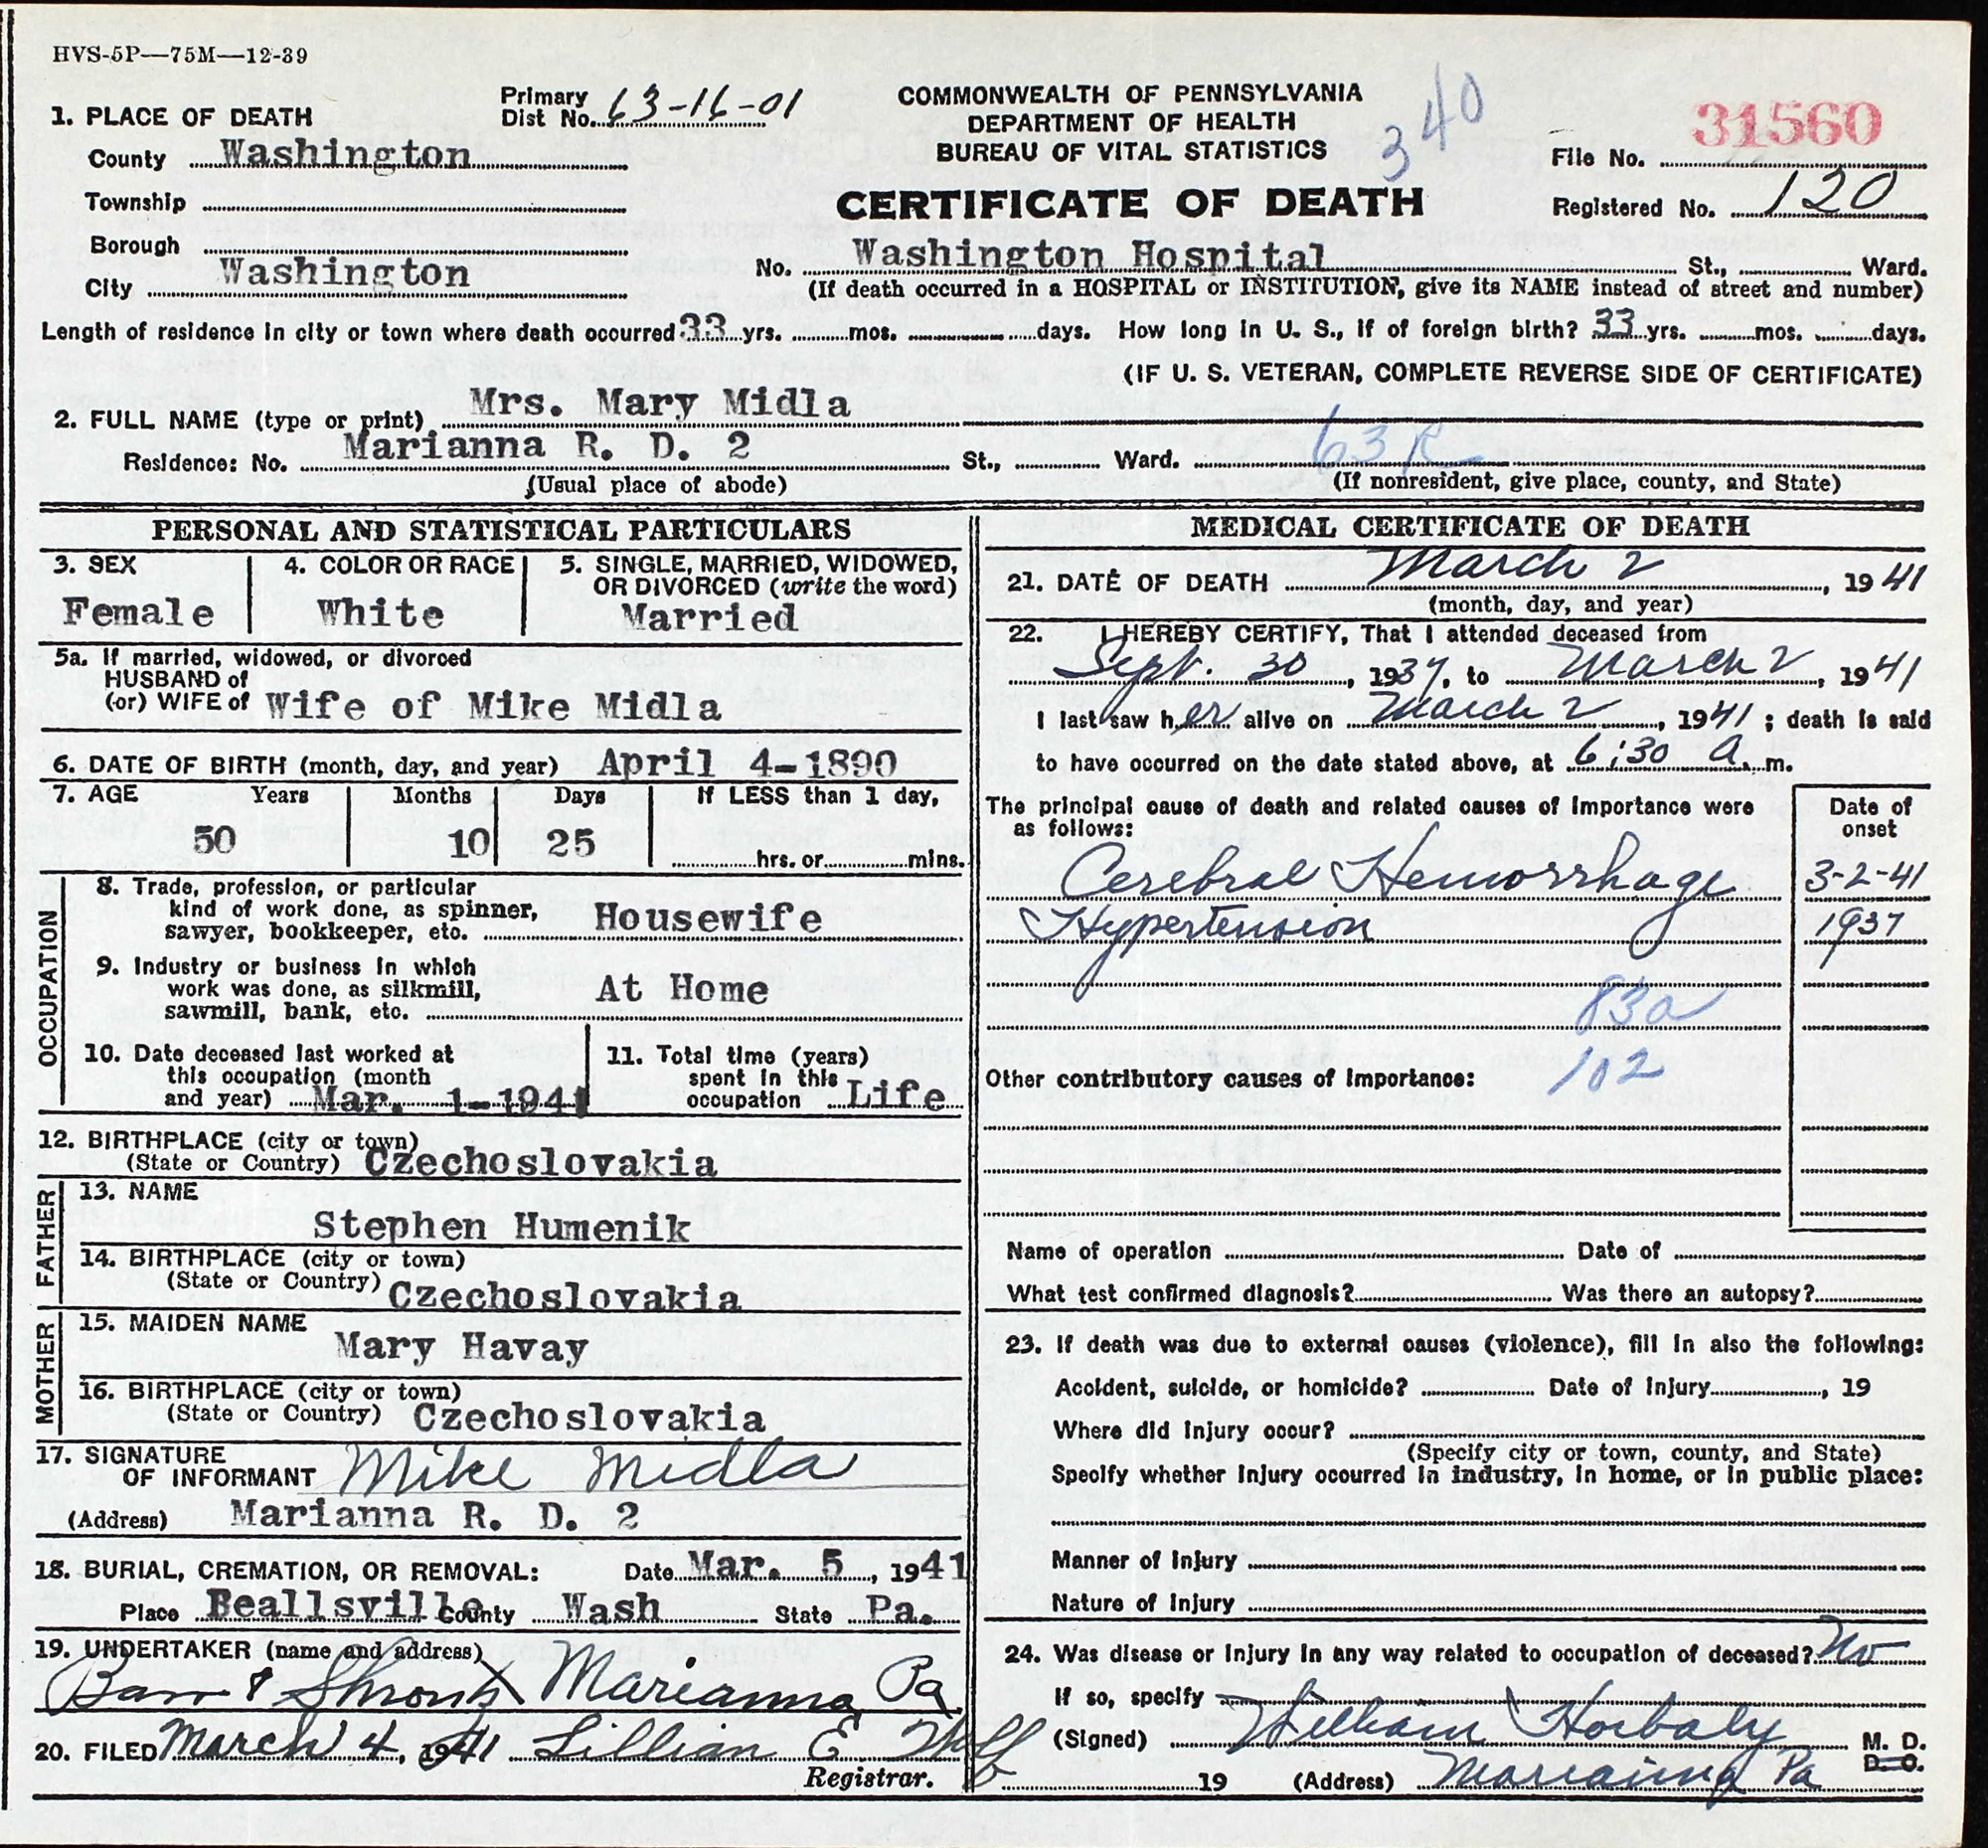 HVS-5P—75M—12-39
1. PLACE OF DEATH
Primary Dist No. 63-16-01
COMMONWEALTH OF PENNSYLVANIA
DEPARTMENT OF HEALTH
BUREAU OF VITAL STATISTICS
340
31560
County Washington
File No.
Township
CERTIFICATE OF DEATH
Registered No. 120
Borough
City Washington
No. Washington Hospital St., Ward.
(If death occurred in a HOSPITAL or INSTITUTION, give its NAME instead of street and number)
Length of residence in city or town where death occurred 33 yrs. mos. days. How long in U. S., if of foreign birth? 33 yrs. mos. days.
(IF U. S. VETERAN, COMPLETE REVERSE SIDE OF CERTIFICATE)
2. FULL NAME (type or print) Mrs. Mary Midla
Residence: No. Marianna R. D. 2 St., Ward. 63 R
(Usual place of abode) (If nonresident, give place, county, and State)
PERSONAL AND STATISTICAL PARTICULARS
3. SEX
Female
4. COLOR OR RACE
White
5. SINGLE, MARRIED, WIDOWED,
OR DIVORCED (write the word)
Married
5a. If married, widowed, or divorced
HUSBAND of
(or) WIFE of Wife of Mike Midla
6. DATE OF BIRTH (month, day, and year) April 4-1890
7. AGE Years Months Days If LESS than 1 day,
50 10 25 hrs. or mins.
OCCUPATION
8. Trade, profession, or particular
kind of work done, as spinner,
sawyer, bookkeeper, etc. Housewife
9. Industry or business in which
work was done, as silkmill,
sawmill, bank, etc. At Home
10. Date deceased last worked at
this occupation (month
and year) Mar. 1-1941
11. Total time (years)
spent in this
occupation Life
12. BIRTHPLACE (city or town)
(State or Country) Czechoslovakia
FATHER
13. NAME
Stephen Humenik
14. BIRTHPLACE (city or town)
(State or Country) Czechoslovakia
MOTHER
15. MAIDEN NAME
Mary Havay
16. BIRTHPLACE (city or town)
(State or Country) Czechoslovakia
17. SIGNATURE
OF INFORMANT Mike Midla
(Address) Marianna R. D. 2
18. BURIAL, CREMATION, OR REMOVAL: Date Mar. 5, 1941
Place Beallsville County Wash State Pa.
19. UNDERTAKER (name and address)
& Marianna Pa
20. FILED March 4, 1941 Lillian E.
Registrar.
MEDICAL CERTIFICATE OF DEATH
21. DATE OF DEATH March 2, 1941
(month, day, and year)
22. I HEREBY CERTIFY, That I attended deceased from
Sept. 30, 1937, to March 2, 1941
I last saw her alive on March 2, 1941; death is said
to have occurred on the date stated above, at 6:30 A. m.
The principal cause of death and related causes of importance were
as follows:
Date of
onset
Cerebral Hemorrhage 3-2-41
Hypertension 1937
83a
102
Other contributory causes of importance:
Name of operation Date of
What test confirmed diagnosis? Was there an autopsy?
23. If death was due to external causes (violence), fill in also the following:
Accident, suicide, or homicide? Date of injury, 19
Where did injury occur?
(Specify city or town, county, and State)
Specify whether injury occurred in industry, in home, or in public place:
Manner of injury
Nature of injury
24. Was disease or injury in any way related to occupation of deceased? No
If so, specify
(Signed) William Horbaly M. D.
D. O.
19 (Address) Marianna Pa